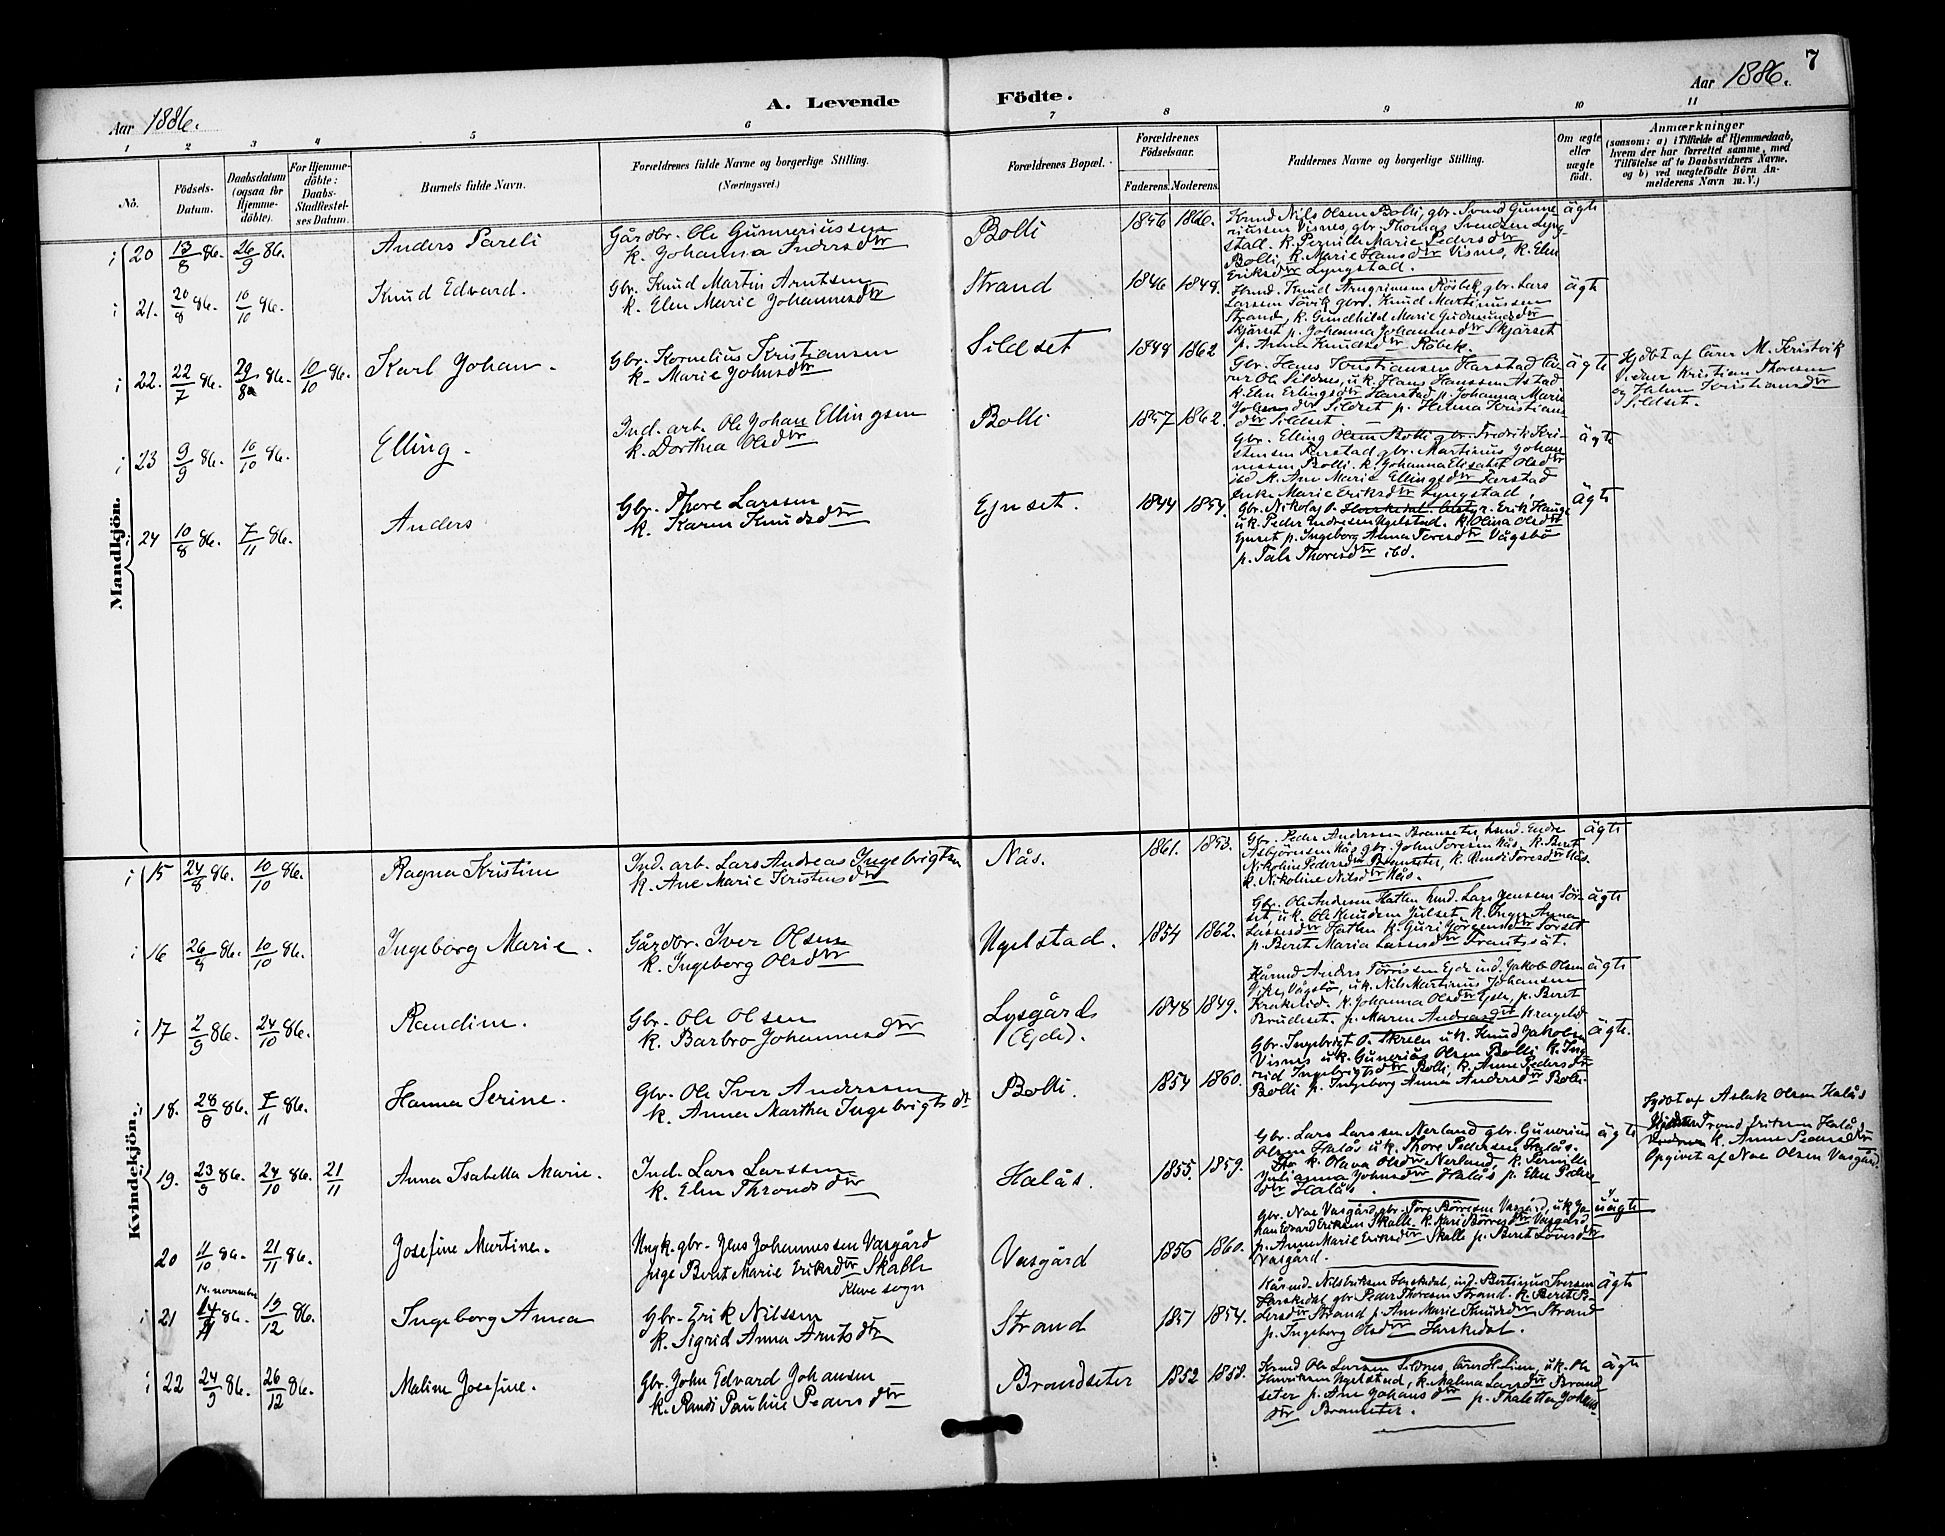 7
Aar 1886.
A. Levende Födte.
Aar 1886.
1 2 3 4 5 6 7 8 9 10 11
Nô.
Födsels-
Datum.
Daabsdatum
(ogsaa for
Hjemme-
döbte).
For Hjemme-
döbte:
Daabs-
Stadfestel-
ses Datum.
Barnets fulde Navn.
Forældrenes fulde Navne og borgerlige Stilling.
(Næringsvei.)
Forældrenes Bopæl.
Forældrenes
Födselsaar.
Faderens. Moderens.
Faddernes Navne og borgerlige Stilling.
Om ægte
eller
uægte
födt.
Anmærkninger
(saasom: a) i Tilfælde af Hjemmedaab,
hvem der har forrettet samme, med
Tilföielse af to Daabsvidners Navne,
og b) ved uægtefödte Börn An-
melderens Navn m. V.)
Mandkjön.
20 13/8 86. 26/9 86.
Anders Pareli
Gårdbr. Ole Gunneriussen
k. Johanna Andersdtr
Bolli
1856 1860.
Nils Olsen Bolli, gbr. Svend Gunne-
riussen Visnes, gbr. Thomas Svendsen Lyng-
stad. k. Pernille Marie Pedersdtr
Bolli, k. Marie Hansdtr Visnes, k. Elen
Eriksdtr Lyngstad.
ägte
21. 20/8 86. 10/10 86.
Knud Edvard.
Gbr. Knud Martin Arntsen
k. Elen Marie Johannesdtr
Strand
1846 1848.
Knud Arngrimsen Röbek, gbr. Lars
Larssen Sövik gbr. Knud Martinussen
Strand, k. Gundhild Marie Gudmundsdtr
Skjärset p. Johanna Johannesdtr Skjärset
p. Anna Knudsdtr Röbek.
ägte
22. 22/7 86. 29/8 86. 10/10 86.
Karl Johan.
Gbr. Kornelius Kristiansen
k. Marie Johnsdtr
Sildset
1849 1862
Gbr. Hans Kristiansen Harstad
Ole Sildnes, u.k. Hans Hanssen Astad
k. Elen Erlingsdtr Harstad p. Johanna Marie
Johansdtr Sildset p. Helma Kristians-
dtr Sildset.
ägte
Hjdbt af lärer M. Kristvik
Vidner Kristian Thoresen
og Helma Kristiansdtr
Sildset.
23 9/9 86. 10/10 86.
Elling.
Ind. arb. Ole Johan Ellingsen
k. Dorthea Olsdtr
Bolli
1857 1862.
Gbr. Elling Olsen Bolli gbr. Fredrik Kri-
stensen Farstad gbr. Martinus Johan-
nessen Bolli. k. Johanna Elisabet Olsdtr
ibd k. Ane Marie Ellingsdtr Farstad
Enke Marie Eriksdtr Lyngstad,
ägte
24 10/8 86. 7/11 86.
Anders
Gbr. Thore Larssen
k. Karen Knudsdtr
Ejnset.
1844 1854.
Gbr. Nikolaj O. Erik Hauge
u.k. Peder Endresen Ugelstad. k. Olina Olsdtr
Ejnset p. Ingeborg Anna Toresdtr Vågsbö
p. Tale Thoresdtr ibd.
ägte
Kvindekjön.
15 24/8 86. 10/10 86.
Ragna Kristine
Ind. arb. Lars Andreas Ingebrigtsen
k. Ane Marie Kristensdtr
Nås.
1861. 1853.
Gbr. Peder Andersen Bramseter, hmd. Endre
Asbjörnsen Nås gbr. John Toresen Nås k. Beret
Nikoline Pedersdtr Bramseter, k. Randi Toresdtr Nås.
k. Nikoline Nilsdtr Nås.
ägte
16 26/9 86. 10/10 86.
Ingeborg Marie.
Gårdbr. Iver Olsen
k. Ingeborg Olsdtr
Ugelstad.
1854 1862.
Gbr. Ole Andersen Hatlen hmd. Lars Jensen Sör-
set, u.k. Ole Knudsen Julset, k. Inger Anna
Larssdtr Hatlen k. Guri Jörgensdtr Sörset
p. Beret Maria Larssdtr
ägte
17 2/9 86. 24/10 86.
Randine.
Gbr. Ole Olsen
k. Barbro Johannesdtr
Lysgård
(Ejde).
1848 1849.
Anders Törrissen Ejde ind. Jakob Olsen
Vågsbö, u.k. Nils Martinus Johansen
Krakelid. k. Johanna Olsdtr Ejde, p. Beret
Brudeset. p. Maren Andreasdtr Krakelid
ägte
18. 28/8 86. 7/11 86.
Hanna Serine.
Gbr. Ole Iver Anderssen
k. Anna Martha Ingebrigtsdt
Bolli.
1854 1860.
Gbr. Ingebrigt O. Skrsen u.k. Knud Jakobsen
Visnes u.k. Gunerius Olsen Bolli k. Ing-
rid Ingebrigtsdtr Bolli, k. Anne Pedersdtr
Bolli p. Ingeborg Anna Andersdtr Bolli.
ägte.
19. 23/9 86. 24/10 86. 21/11
Anna Isabella Marie.
Ind. Lars Larssen
k. Elen Thronsdtr
Halås.
1855. 1859.
Gbr. Lars Larssen Nerland gbr. Gunerius
Olsen Halås u.k. Thore Pedersen Halås.
k. Olava Olsdtr Nerland, k. Pernille
Julianna Johnsdtr Halås p. Elen Peders-
dtr Halås.
ägte
Hjdbt af Aslak Olsen Halås
Trond Eriksen Halås
k. Anne Pedersdtr
Opgivet af Noe Olsen Vasgård.
20 11/10 86. 21/11 86.
Josefine Martine.
Ungk. gbr. Jens Johannessen Vasgård
Pige Beret Marie Eriksdtr Skalle
Kleve sogn
Vasgård
1856 1860.
Gbr. Noe Vasgård gbr. Tore Börresen Vasgård, u.k. Jo-
han Edvard Eriksen Skalle, k. Kari Börresdtr Vasgård,
p. Anne Marie Eriksdtr Skalle p. Beret Toresdtr
Vasgård.
uägte
21 14. november 14/11 86. 13/12 86.
Ingeborg Anna
Gbr. Erik Nilssen
k. Sigrid Anna Arntsdtr
Strand
1857 1854.
Nils Eriksen Harskedal, ind. Bertinus Iversen
Harskedal gbr Peder Thoresen Strand. k. Beret Pe-
dersdtr Strand p. Ane Marie Knudsdtr Strand
p. Ingeborg Olsdtr Harskedal.
ägte
22 24/9 86. 26/12 86.
Maline Josefine.
Gbr. John Edvard Johansen
k. Randi Pauline Pedersdtr
Brandseter
1852 1858.
Ole Larssen Sildnes, lärer H. Lien, u.k. Ole
Henriksen Ugelstad, k. Malena Larsdtr Brand-
seter p. Ane Johansdtr p. Thaletta Johans-
dtr Bramseter.
ägte